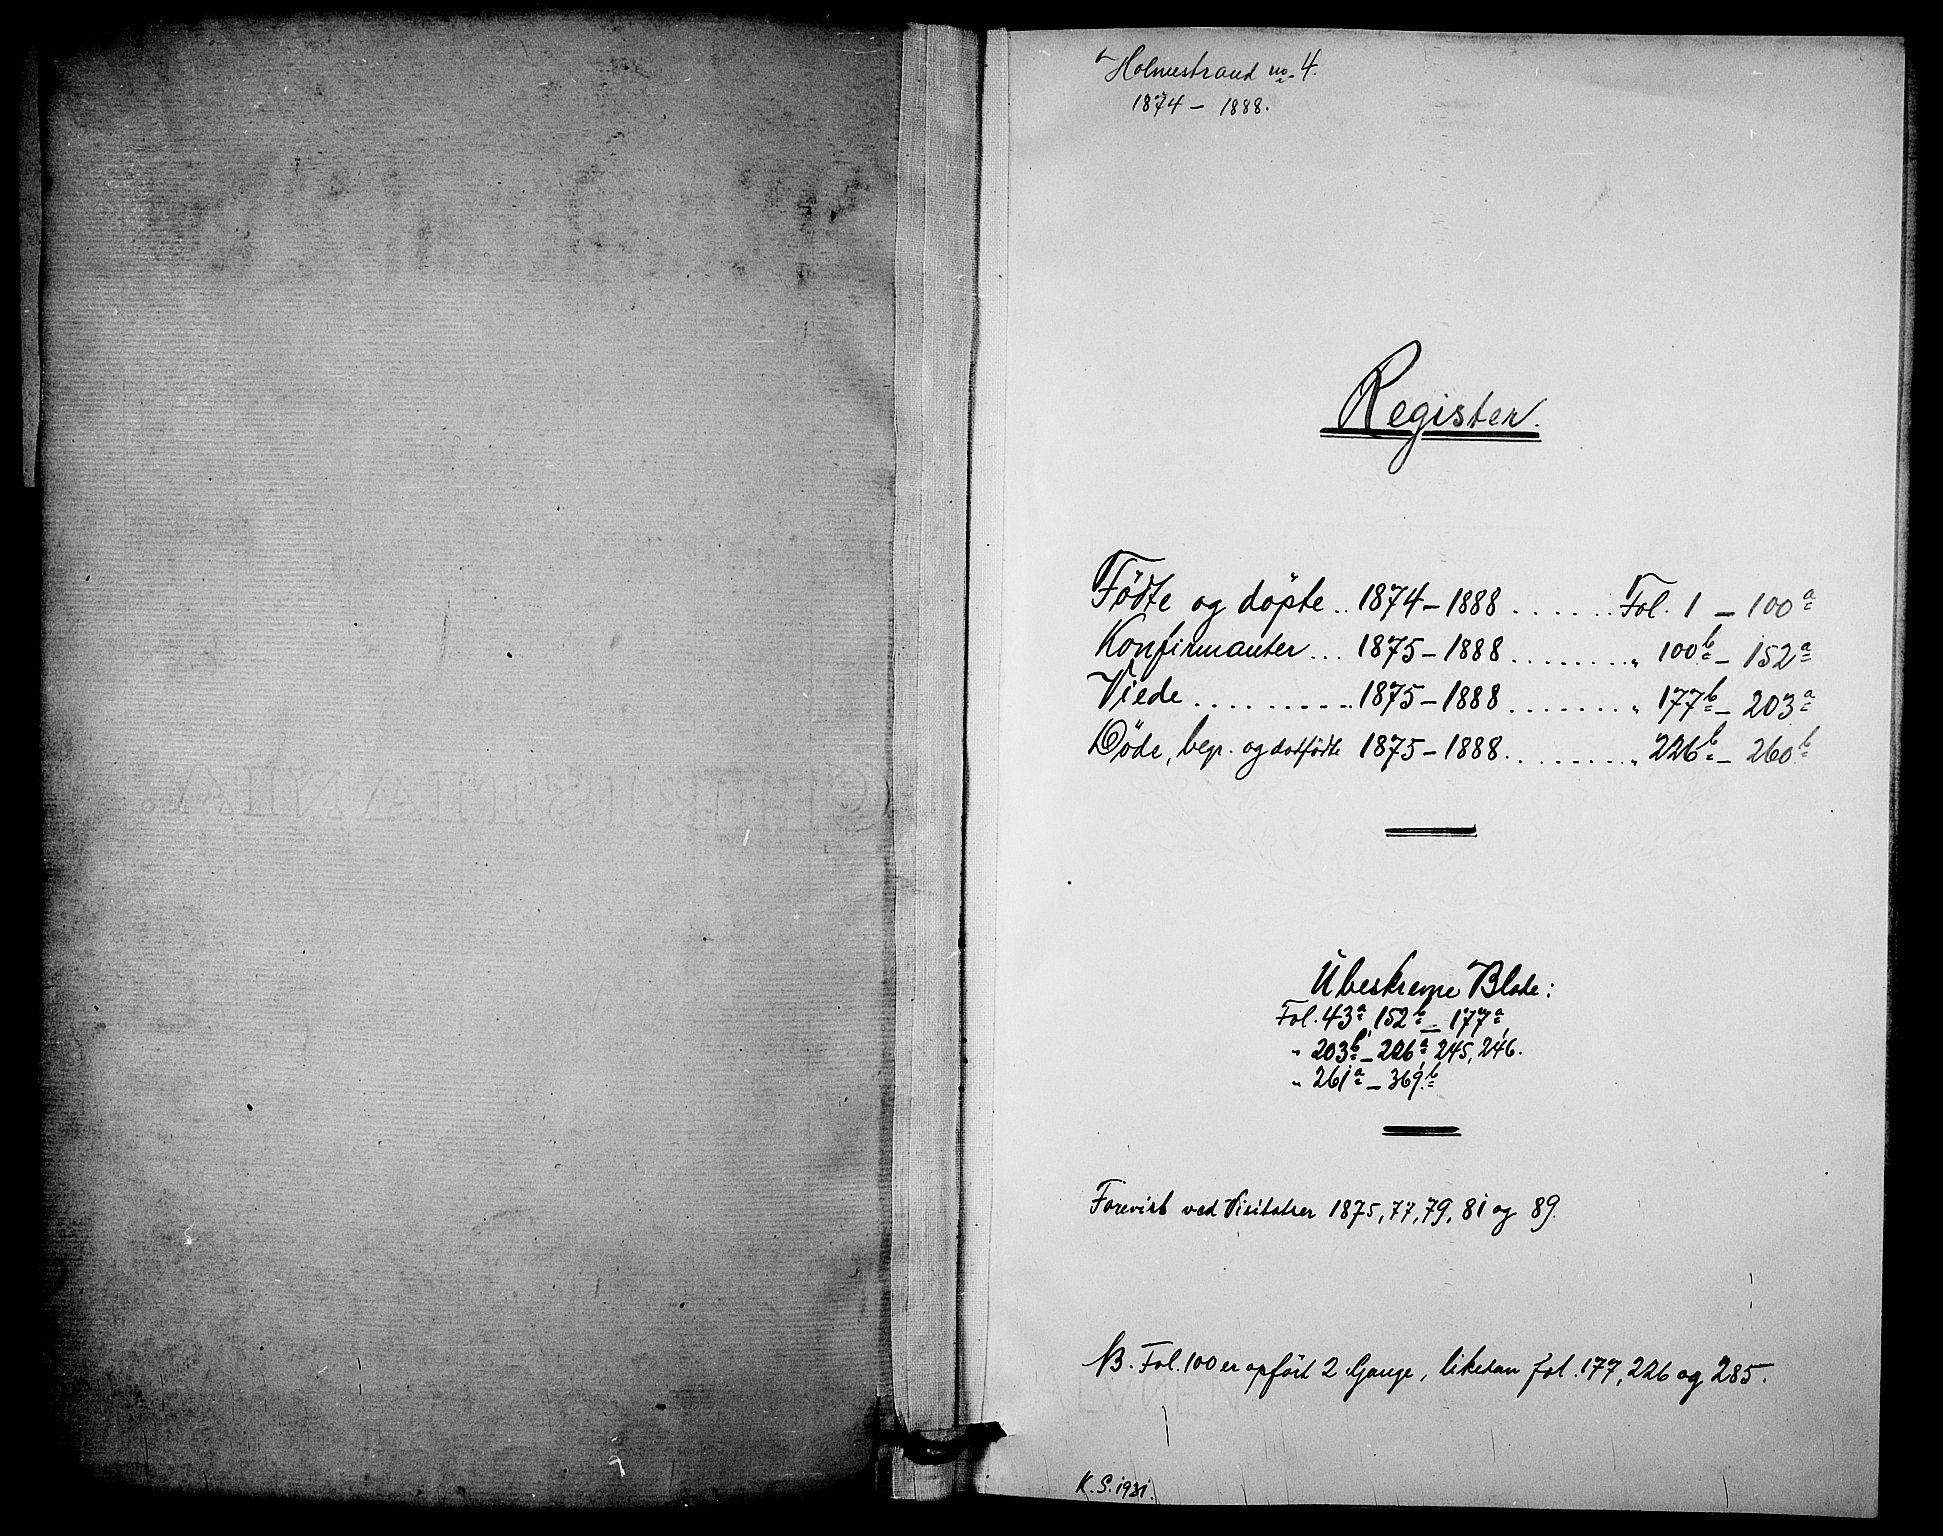 Holmestrand no. 4.
1874 – 1888.
Register.
Födte og döpte .. 1874 – 1888 ....... Fol. 1 – 100a
Konfirmanter ... 1875 – 1888 ........ „ 100b – 152a
Viede .......... 1875 – 1888 ........ „ 177b – 203a
Döde, begr. og dødfödte 1875 – 1888 ........ „ 226b – 260b
Ubeskrevne Blade:
Fol. 43a, 152b – 177a,
„ 203b – 226a, 245, 246.
„ 261a – 369b
Forevist ved Visitatser 1875, 77, 79, 81 og 89.
NB. Fol. 100 er opfört 2 Gange, likesaa fol. 177, 226 og 285.
K. S. 1931.
CHRISTIANIA.